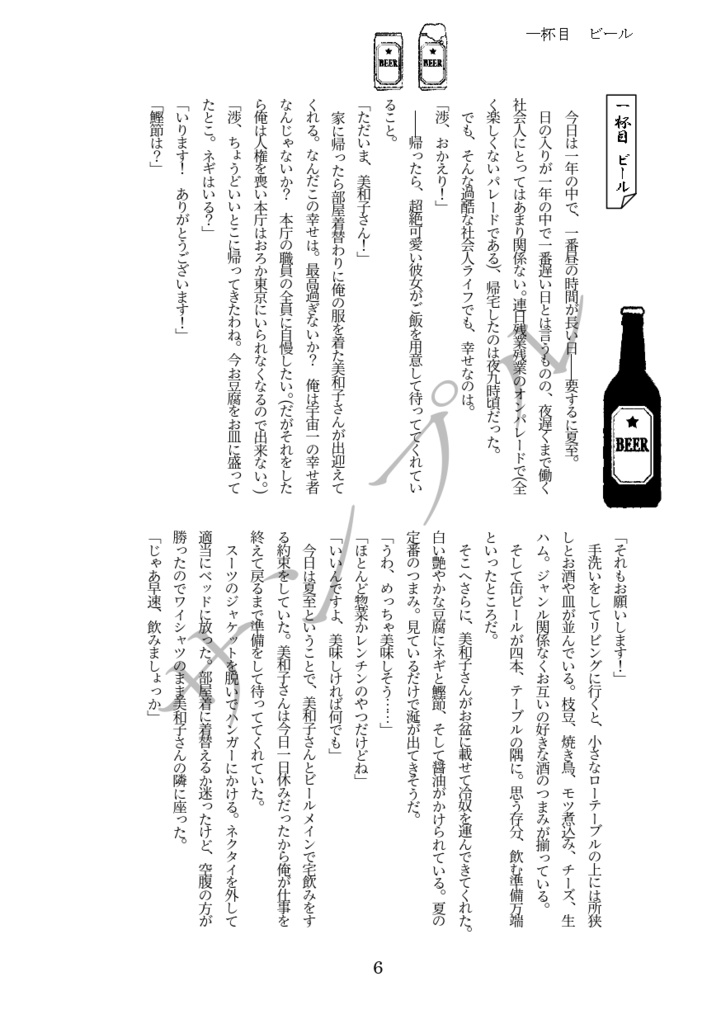 一杯目　ビール
BEER
BEER
一杯目　ビール
BEER
今日は一年の中で、一番昼の時間が長い日――要するに夏至。
日の入りが一年の中で一番遅い日とは言うものの、夜遅くまで働く
社会人にとってはあまり関係ない。連日残業残業のオンパレードで(全
く楽しくないパレードである)、帰宅したのは夜九時頃だった。
でも、そんな過酷な社会人ライフでも、幸せなのは。
「渉、おかえり！」
――帰ったら、超絶可愛い彼女がご飯を用意して待っててくれてい
ること。
「ただいま、美和子さん！」
家に帰ったら部屋着替わりに俺の服を着た美和子さんが出迎えて
くれる。なんだこの幸せは。最高過ぎないか？　俺は宇宙一の幸せ者
なんじゃないか？　本庁の職員の全員に自慢したい。(だがそれをした
ら俺は人権を喪い本庁はおろか東京にいられなくなるので出来ない。)
「渉、ちょうどいいとこに帰ってきたわね。今お豆腐をお皿に盛って
たとこ。ネギはいる？」
「いります！　ありがとうございます！」
「鰹節は？」
「それもお願いします！」
手洗いをしてリビングに行くと、小さなローテーブルの上には所狭
しとお酒や皿が並んでいる。枝豆、焼き鳥、モツ煮込み、チーズ、生
ハム。ジャンル関係なくお互いの好きな酒のつまみが揃っている。
そして缶ビールが四本、テーブルの隅に。思う存分、飲む準備万端
といったところだ。
そこへさらに、美和子さんがお盆に載せて冷奴を運んできてくれた。
白い艶やかな豆腐にネギと鰹節、そして醤油がかけられている。夏の
定番のつまみ。見ているだけで涎が出てきそうだ。
「うわ、めっちゃ美味しそう……」
「ほとんど惣菜かレンチンのやつだけどね」
「いいんですよ、美味しければ何でも」
今日は夏至ということで、美和子さんとビールメインで宅飲みをす
る約束をしていた。美和子さんは今日一日休みだったから俺が仕事を
終えて戻るまで準備をして待っててくれていた。
スーツのジャケットを脱いでハンガーにかける。ネクタイを外して
適当にベッドに放った。部屋着に着替えるか迷ったけど、空腹の方が
勝ったのでワイシャツのまま美和子さんの隣に座った。
「じゃあ早速、飲みましょっか」
サンプル
6